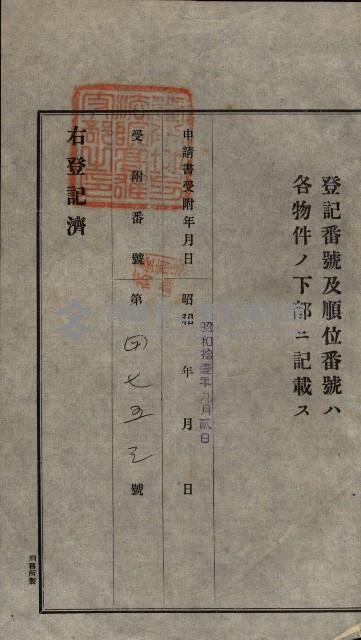 登記番號及順位番號ハ
各物件ノ下部ニ記載ス
申請書受附年月日
昭和 年 月 日
昭和拾壹年九月貳日
受附番號
第 四七五三 號
右登記濟
刑務所製